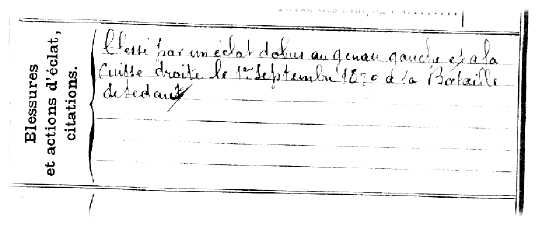 Blessures
et actions d'éclat,
citations.
blessé par un éclat d'obus au genou gauche et a la
Cuisse droite le 1er Septembre 1870 à la Bataille
de Sedan